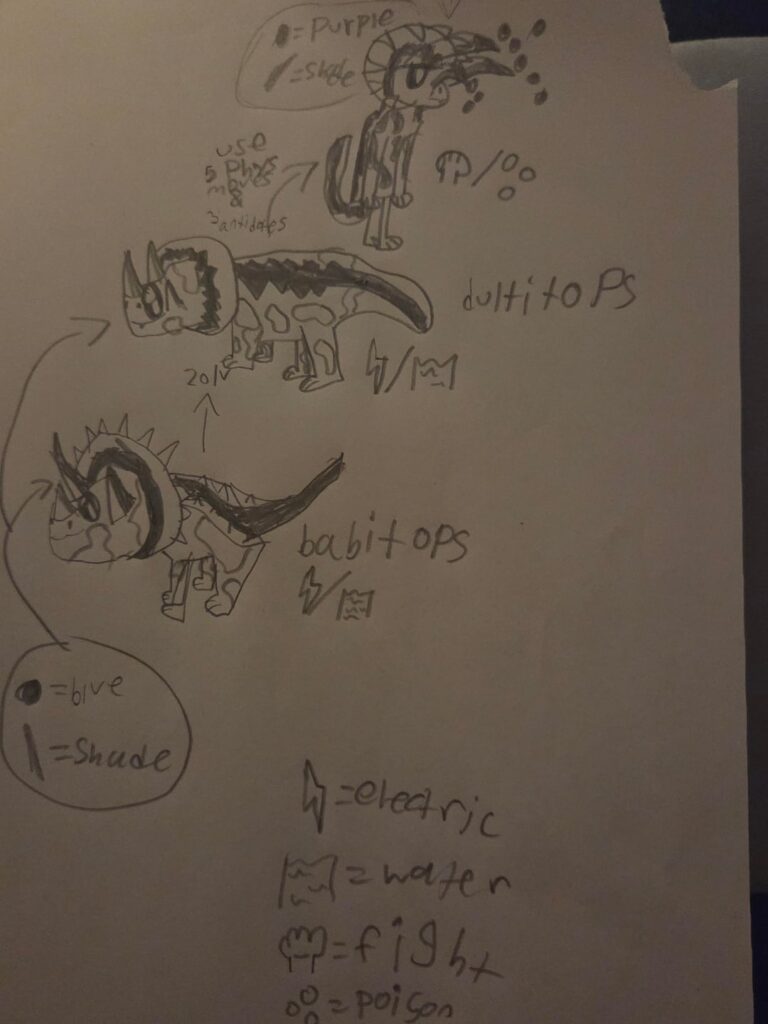 = Purple
= Shade
use
5 Phys
moves
&
3 antidotes
dultitops
20 lv
babitops
=blve
=Shade
=electric
=water
=fight
=poison